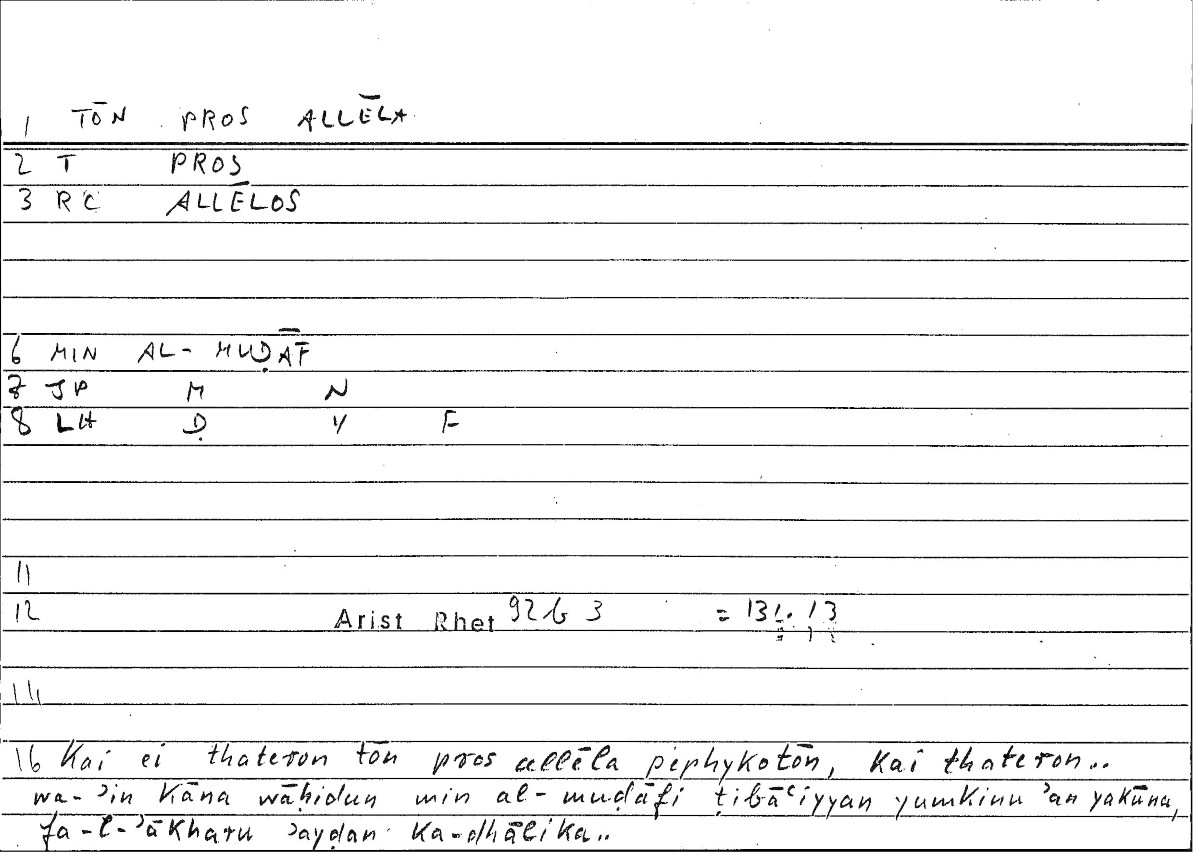 1 TŌN PROS ALLĒLA
2 T PROS
3 RC ALLĒLOS
6 MIN AL- MUḌĀF
7 JP M N
8 LH Ḍ Y F
11
12 Arist Rhet 92b 3 = 131.13
14
16 Kai ei thateron tōn pros allēla pephykotōn, kai thateron..
wa-ʾin kāna wāḥidun min al-muḍāfi ṭibāʿiyyan yumkinu ʾan yakūna,
fa-l-ʾākharu ʾayḍan ka-dhālika..